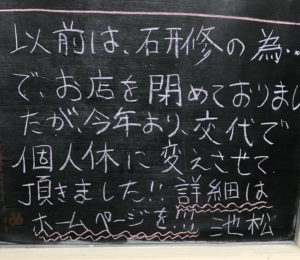 以前は、研修の為..
で、お店を閉めておりまし
たが、今年より、交代で
個人休に変えさせて
頂きました!! 詳細は
ホームページを!!! 池松